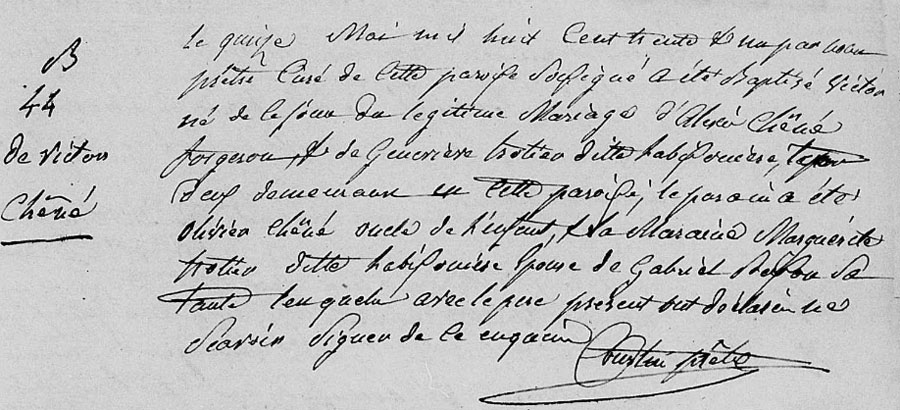 B
44
de victor
Chêné
le quinze Mai mil huit Cent trente & un par nous
prêtre Curé de Cette paroisse Soussigné a été Baptisé Victor
né de ce jour du legitime Mariage d'Alexis Chêné
forgeron & de Geneviève trotier ditte Labissonière,
deux demeurant en Cette paroisse; le parain a été
olivier Chêné oncle de l'enfant, & la Maraine Marguerite
trotier ditte Labissonière Epouse de Gabriel Sa
tante lesquels avec le pere présent ont déclaré ne
Scavoir Signer de Ce enquis
prêtre